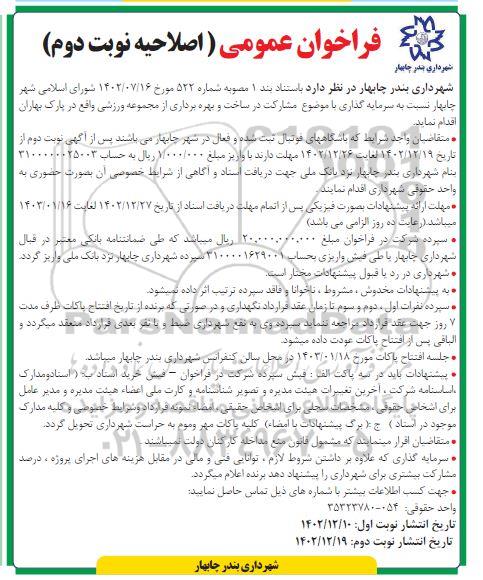 فراخوان عمومی ( اصلاحیه نوبت دوم)
شهرداری بندر چابهار
شهرداری بندر چابهار در نظر دارد باستناد بند ۱ مصوبه شماره ۵۲۲ مورخ ۱۴۰۲/۰۷/۱۶ شورای اسلامی شهر
چابهار نسبت به سرمایه گذاری با موضوع مشارکت در ساخت و بهره برداری از مجموعه ورزشی واقع در پارک بهاران
اقدام نماید.
• متقاضیان واجد شرایط که باشگاههای فوتبال ثبت شده و فعال در شهر چابهار می باشند پس از آگهی نوبت دوم از
تاریخ ۱۴۰۲/۱۲/۱۹ لغایت ۱۴۰۲/۱۲/۲۶ مهلت دارند با واریز مبلغ ۱/۰۰۰/۰۰۰ ریال به حساب ۳۱۰۰۰۰۰۰۲۵۰۰۳
بنام شهرداری بندر چابهار نزد بانک ملی جهت دریافت اسناد و آگاهی از شرایط خصوصی آن بصورت حضوری به
واحد حقوقی شهرداری اقدام نمایند.
• مهلت ارائه پیشنهادات بصورت فیزیکی پس از اتمام مهلت دریافت اسناد از تاریخ ۱۴۰۲/۱۲/۲۷ لغایت ۱۴۰۳/۰۱/۱۶
میباشد.(رعایت ده روز الزامی می باشد)
• سپرده شرکت در فراخوان مبلغ ۲۰.۰۰۰.۰۰۰.۰۰۰ ریال میباشد که طی ضمانتنامه بانکی معتبر در قبال
شهرداری چابهار یا طی فیش واریزی بحساب ۳۱۰۰۰۰۱۶۲۹۰۰۱ سپرده شهرداری چابهار نزد بانک ملی واریز گردد.
• شهرداری در رد یا قبول پیشنهادات مختار است.
• به پیشنهادات مخدوش ، مشروط ، ناخوانا و فاقد سپرده ترتیب اثر داده نمیشود.
• سپرده نفرات اول ، دوم و سوم تا زمان عقد قرارداد نگهداری و در صورتی که برنده از تاریخ افتتاح پاکات ظرف مدت
۷ روز جهت عقد قرارداد مراجعه ننماید سپرده وی به نفع شهرداری ضبط و با نفر بعدی قرارداد منعقد میگردد و
الباقی پس از افتتاح پاکات عودت داده میشود.
• جلسه افتتاح پاکات مورخ ۱۴۰۳/۰۱/۱۸ در محل سالن کنفرانس شهرداری بندر چابهار میباشد.
• پیشنهادات باید در سه پاکت الف: فیش سپرده شرکت در فراخوان – فیش خرید اسناد ب: ( اسنادومدارک
،اساسنامه شرکت ، آخرین تغییرات هیئت مدیره و تصویر شناسنامه و کارت ملی اعضاء هیئت مدیره و مدیر عامل
برای اشخاص حقوقی ، مشخصات سجلی برای اشخاص حقیقی، امضاء نمونه قرارداد وشرایط خصوصی و کلیه مدارک
موجود در اسناد ) ج :( برگ پیشنهادات با امضاء) کلیه پاکات مهر وموم به حراست شهرداری تحویل گردد.
• متقاضیان اقرار مینمایند که مشمول قانون منع مداخله کارکنان دولت نمیباشند
• سرمایه گذاری که علاوه بر داشتن شروط لازم ، توانایی فنی و مالی در مقابل هزینه های اجرای پروژه ، درصد
مشارکت بیشتری برای شهرداری را پیشنهاد دهد برنده اعلام میگردد.
• جهت کسب اطلاعات بیشتر با شماره های ذیل تماس حاصل نمایید:
واحد حقوقی: ۰۵۴-۳۵۳۲۳۷۸۰
تاریخ انتشار نوبت اول: ۱۴۰۲/۱۲/۱۰
تاریخ انتشار نوبت دوم: ۱۴۰۲/۱۲/۱۹
شهرداری بندر چابهار